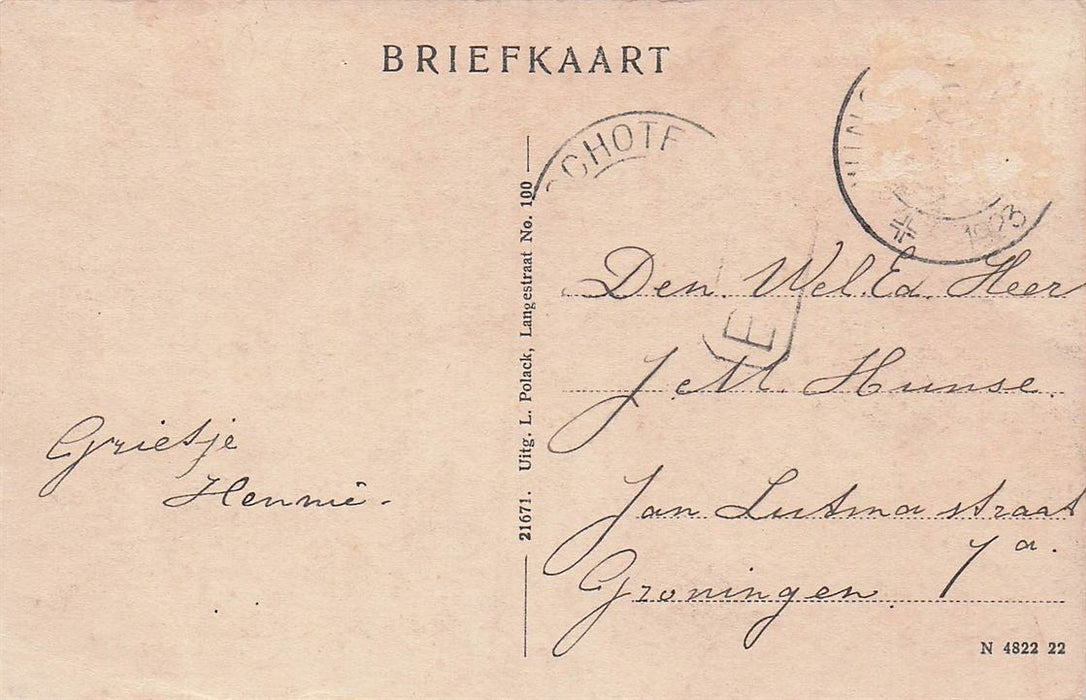 BRIEFKAART
Grietje
Hennie -
21671. Uitg. L. Polack, Langestraat No. 100
1923
E
Den Wel.Ed. Heer
J. M. Hunse.
Jan Lutma straat
7a.
Groningen.
N 4822 22